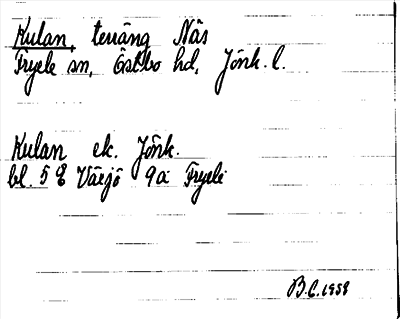 Kulan, terräng Näs
Fryele sn, Östbo hd, Jönk. l.
Kulan ek. Jönk.
bl. 5 E Växjö 9a Fryele
B.C. 1958